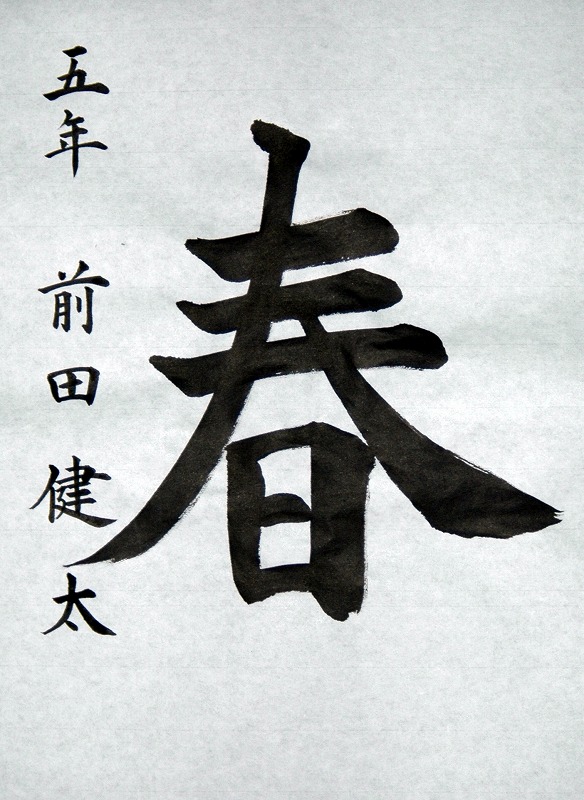 春
五年 前田健太